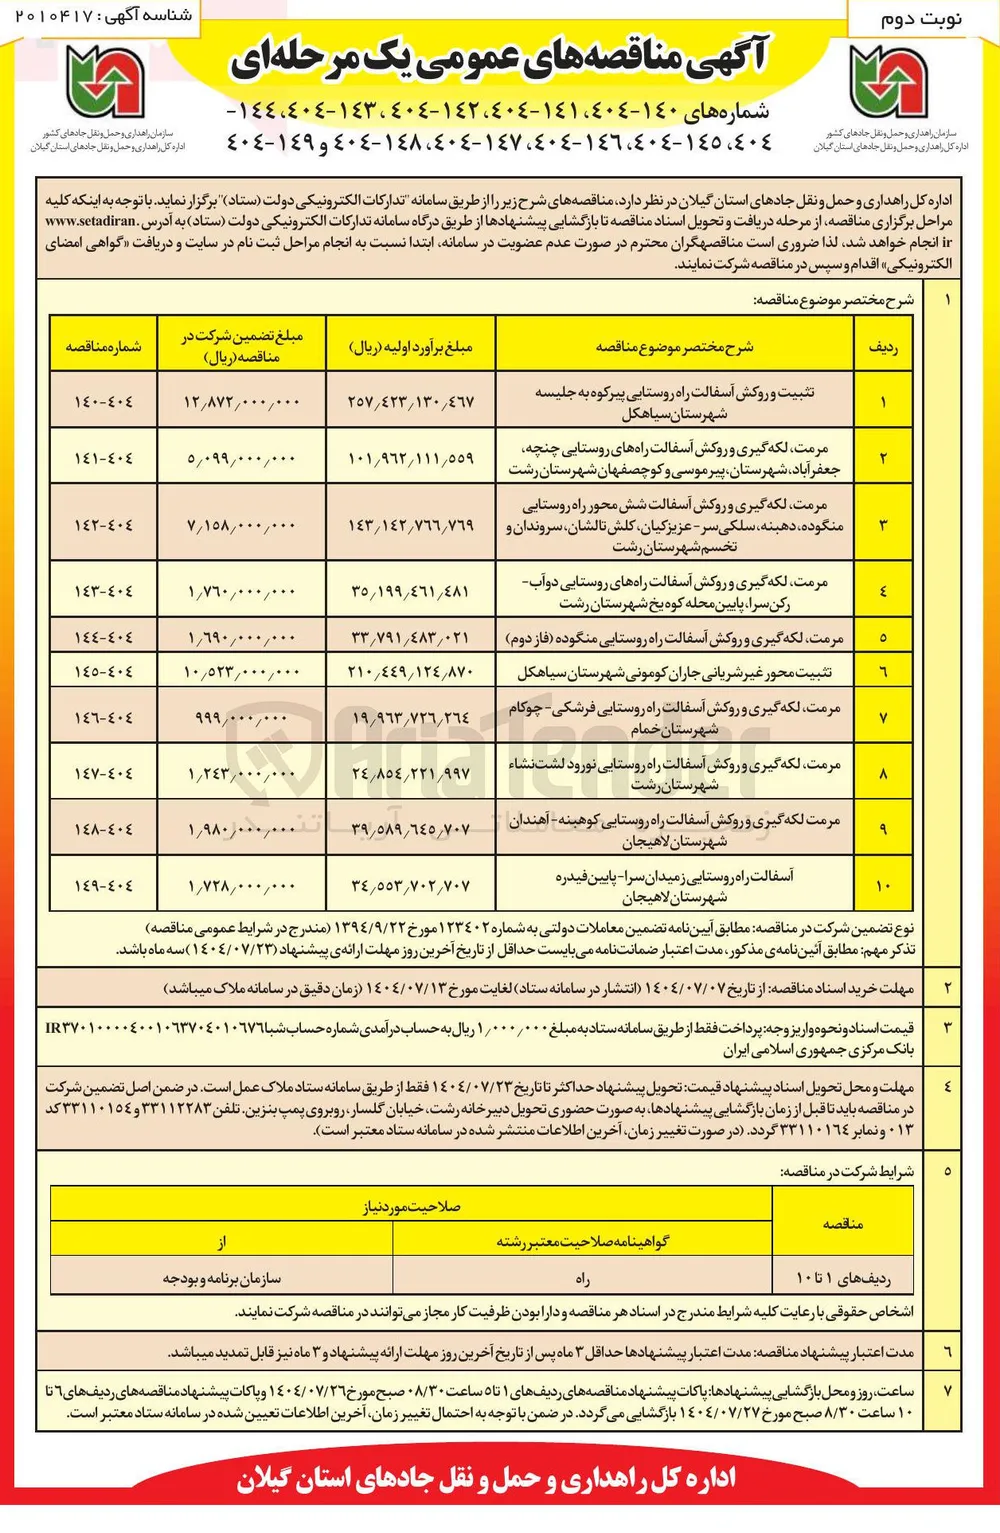 نوبت دوم
شناسه آگهی: ۲۰۱۰۴۱۷
آگهی مناقصه‌های عمومی یک مرحله‌ای
شماره‌های ۱۴۰-۴۰۴، ۱۴۱-۴۰۴، ۱۴۲-۴۰۴، ۱۴۳-۴۰۴، ۱۴۴-
۴۰۴، ۱۴۵-۴۰۴، ۱۴۶-۴۰۴، ۱۴۷-۴۰۴، ۱۴۸-۴۰۴ و ۱۴۹-۴۰۴
سازمان راهداری و حمل و نقل جاده‌ای کشور
اداره کل راهداری و حمل و نقل جاده‌ای استان گیلان
سازمان راهداری و حمل و نقل جاده‌ای کشور
اداره کل راهداری و حمل و نقل جاده‌ای استان گیلان
اداره کل راهداری و حمل و نقل جاده‌ای استان گیلان در نظر دارد، مناقصه‌های شرح زیر را از طریق سامانه "تدارکات الکترونیکی دولت (ستاد)" برگزار نماید. با توجه به اینکه کلیه
مراحل برگزاری مناقصه، از مرحله دریافت و تحویل اسناد مناقصه تا بازگشایی پیشنهادها از طریق درگاه سامانه تدارکات الکترونیکی دولت (ستاد) به آدرس www.setadiran.
ir انجام خواهد شد، لذا ضروری است مناقصه‌گران محترم در صورت عدم عضویت در سامانه، ابتدا نسبت به انجام مراحل ثبت نام در سایت و دریافت «گواهی امضای
الکترونیکی» اقدام و سپس در مناقصه شرکت نمایند.
۱ شرح مختصر موضوع مناقصه:
ردیف شرح مختصر موضوع مناقصه مبلغ برآورد اولیه (ریال) مبلغ تضمین شرکت در مناقصه (ریال) شماره مناقصه
۱ تثبیت و روکش آسفالت راه روستایی پیرکوه به جلیسه
شهرستان سیاهکل ۲۵۷٫۴۲۳٫۱۳۰٫۴۶۷ ۱۲٫۸۷۲٫۰۰۰٫۰۰۰ ۱۴۰-۴۰۴
۲ مرمت، لکه‌گیری و روکش آسفالت راه‌های روستایی چنچه،
جعفرآباد، شهرستان، پیرموسی و کوچصفهان شهرستان رشت ۱۰۱٫۹۶۲٫۱۱۱٫۵۵۹ ۵٫۰۹۹٫۰۰۰٫۰۰۰ ۱۴۱-۴۰۴
۳ مرمت، لکه‌گیری و روکش آسفالت شش محور راه روستایی
منگوده، دهبنه، سلکی‌سر - عزیزکیان، کلش تالشان، سروندان و
تخسم شهرستان رشت ۱۴۳٫۱۴۲٫۷۶۶٫۷۶۹ ۷٫۱۵۸٫۰۰۰٫۰۰۰ ۱۴۲-۴۰۴
۴ مرمت، لکه‌گیری و روکش آسفالت راه‌های روستایی دوآب-
رکن‌سرا، پایین محله کوه‌یخ شهرستان رشت ۳۵٫۱۹۹٫۴۶۱٫۴۸۱ ۱٫۷۶۰٫۰۰۰٫۰۰۰ ۱۴۳-۴۰۴
۵ مرمت، لکه‌گیری و روکش آسفالت راه روستایی منگوده (فاز دوم) ۳۳٫۷۹۱٫۴۸۳٫۰۲۱ ۱٫۶۹۰٫۰۰۰٫۰۰۰ ۱۴۴-۴۰۴
۶ تثبیت محور غیر شریانی جاران کومونی شهرستان سیاهکل ۲۱۰٫۴۴۹٫۱۲۴٫۸۷۰ ۱۰٫۵۲۳٫۰۰۰٫۰۰۰ ۱۴۵-۴۰۴
۷ مرمت، لکه‌گیری و روکش آسفالت راه روستایی فرشکی - چوکام
شهرستان خمام ۱۹٫۹۶۳٫۷۲۶٫۲۶۴ ۹۹۹٫۰۰۰٫۰۰۰ ۱۴۶-۴۰۴
۸ مرمت، لکه‌گیری و روکش آسفالت راه روستایی نورود لشت‌نشاء
شهرستان رشت ۲۴٫۸۵۴٫۲۲۱٫۹۹۷ ۱٫۲۴۳٫۰۰۰٫۰۰۰ ۱۴۷-۴۰۴
۹ مرمت لکه‌گیری و روکش آسفالت راه روستایی کوهبنه - آهندان
شهرستان لاهیجان ۳۹٫۵۸۹٫۶۴۵٫۷۰۷ ۱٫۹۸۰٫۰۰۰٫۰۰۰ ۱۴۸-۴۰۴
۱۰ آسفالت راه روستایی زمیدان‌سرا - پایین فیدره
شهرستان لاهیجان ۳۴٫۵۵۳٫۷۰۲٫۷۰۷ ۱٫۷۲۸٫۰۰۰٫۰۰۰ ۱۴۹-۴۰۴
AriaTender
نوع تضمین شرکت در مناقصه: مطابق آیین‌نامه تضمین معاملات دولتی به شماره ۱۲۳۴۰۲ مورخ ۱۳۹۴/۹/۲۲ (مندرج در شرایط عمومی مناقصه)
تذکر مهم: مطابق آئین‌نامه‌ی مذکور، مدت اعتبار ضمانت‌نامه می‌بایست حداقل از تاریخ آخرین روز مهلت ارائه‌ی پیشنهاد (۱۴۰۴/۰۷/۲۳) سه ماه باشد.
۲ مهلت خرید اسناد مناقصه: از تاریخ ۱۴۰۴/۰۷/۰۷ (انتشار در سامانه ستاد) لغایت مورخ ۱۴۰۴/۰۷/۱۳ (زمان دقیق در سامانه ملاک میباشد)
۳ قیمت اسناد و نحوه واریز وجه: پرداخت فقط از طریق سامانه ستاد به مبلغ ۱٫۰۰۰٫۰۰۰ ریال به حساب درآمدی شماره حساب شبا IR۳۷۰۱۰۰۰۰۴۰۰۱۰۶۳۷۰۴۰۱۰۶۷۶
بانک مرکزی جمهوری اسلامی ایران
۴ مهلت و محل تحویل اسناد پیشنهاد قیمت: تحویل پیشنهاد حداکثر تا تاریخ ۱۴۰۴/۰۷/۲۳ فقط از طریق سامانه ستاد ملاک عمل است. در ضمن اصل تضمین شرکت
در مناقصه باید تا قبل از زمان بازگشایی پیشنهادها، به صورت حضوری تحویل دبیرخانه رشت، خیابان گلسار، روبروی پمپ بنزین. تلفن ۳۳۱۱۲۲۸۳ و ۳۳۱۱۰۱۵۴ کد
۰۱۳ و نمابر ۳۳۱۱۰۱۶۴ گردد. (در صورت تغییر زمان، آخرین اطلاعات منتشر شده در سامانه ستاد معتبر است).
۵ شرایط شرکت در مناقصه:
مناقصه صلاحیت مورد نیاز
گواهینامه صلاحیت معتبر رشته از
ردیف‌های ۱ تا ۱۰ راه سازمان برنامه و بودجه
اشخاص حقوقی با رعایت کلیه شرایط مندرج در اسناد هر مناقصه و دارا بودن ظرفیت کار مجاز می‌توانند در مناقصه شرکت نمایند.
۶ مدت اعتبار پیشنهاد مناقصه: مدت اعتبار پیشنهادها حداقل ۳ ماه پس از تاریخ آخرین روز مهلت ارائه پیشنهاد و ۳ ماه نیز قابل تمدید میباشد.
۷ ساعت، روز و محل بازگشایی پیشنهادها: پاکات پیشنهاد مناقصه‌های ردیف‌های ۱ تا ۵ ساعت ۰۸/۳۰ صبح مورخ ۱۴۰۴/۰۷/۲۶ و پاکات پیشنهاد مناقصه‌های ردیف‌های ۶ تا
۱۰ ساعت ۸/۳۰ صبح مورخ ۱۴۰۴/۰۷/۲۷ بازگشایی می‌گردد. در ضمن با توجه به احتمال تغییر زمان، آخرین اطلاعات تعیین شده در سامانه ستاد معتبر است.
اداره کل راهداری و حمل و نقل جاده‌ای استان گیلان